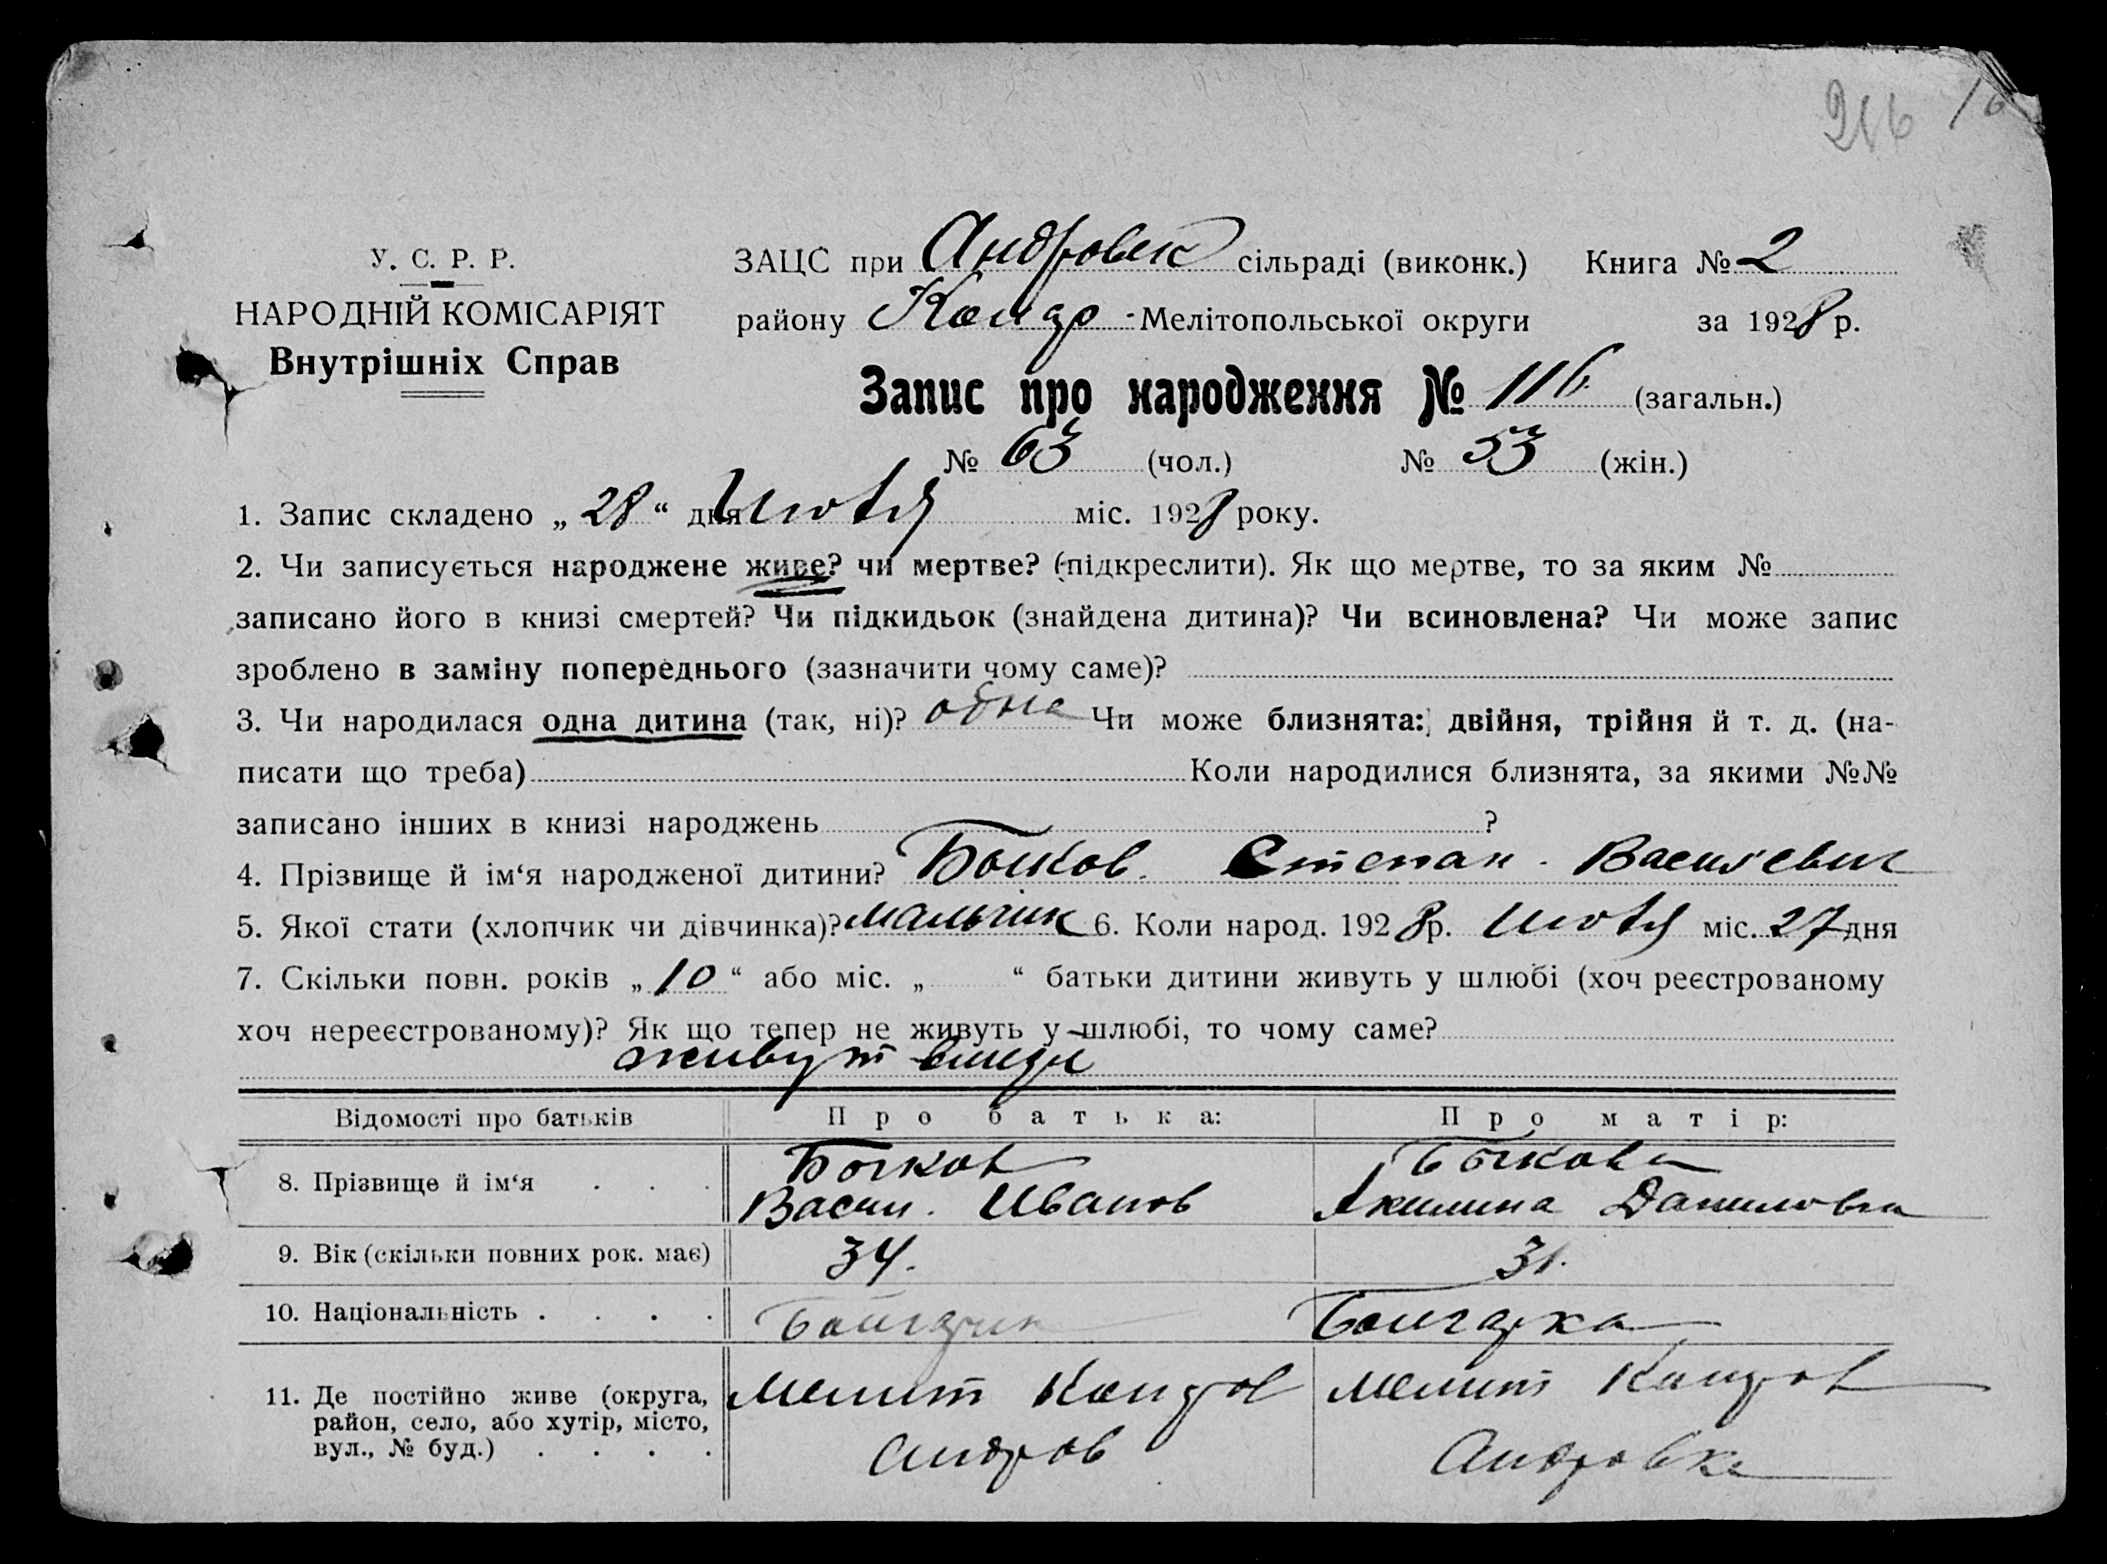 216 16
У. С. Р. Р.
НАРОДНІЙ КОМІСАРІЯТ
Внутрішніх Справ
ЗАЦС при Андровск сільраді (виконк.) Книга № 2
району Коларо -Мелітопольської округи за 1928 р.
Запис про народження № 116 (загальн.)
№ 63 (чол.) № 53 (жін.)
1. Запис складено „28“ дня Июля міс. 1928 року.
2. Чи записується народжене живе? чи мертве? (підкреслити). Як що мертве, то за яким №
записано його в книзі смертей? Чи підкидьок (знайдена дитина)? Чи всиновлена? Чи може запис
зроблено в заміну попереднього (зазначити чому саме)?
3. Чи народилася одна дитина (так, ні)? одна Чи може близнята: двійня, трійня й т. д. (на-
писати що треба) Коли народилися близнята, за якими №№
записано інших в книзі народжень ?
4. Прізвище й ім‘я народженої дитини? Быков Степан Васильевич
5. Якої стати (хлопчик чи дівчинка)? мальчик 6. Коли народ. 1928 р. Июля міс. 27 дня
7. Скільки повн. років „10“ або міс. „ “ батьки дитини живуть у шлюбі (хоч реєстрованому
хоч нереєстрованому)? Як що тепер не живуть у шлюбі, то чому саме?
живут
Відомості про батьків Про батька: Про матір:
8. Прізвище й ім‘я . . . Быков Быкова
Васил. Иванов Акилина Даниловна
9. Вік (скільки повних рок. має) 34. 31.
10. Національність . . . . Болгарин Болгарка
11. Де постійно живе (округа, район, село, або хутір, місто, вул., № буд.) . . . . Мелит Коларов Мелит Коларов
Андров Андровка